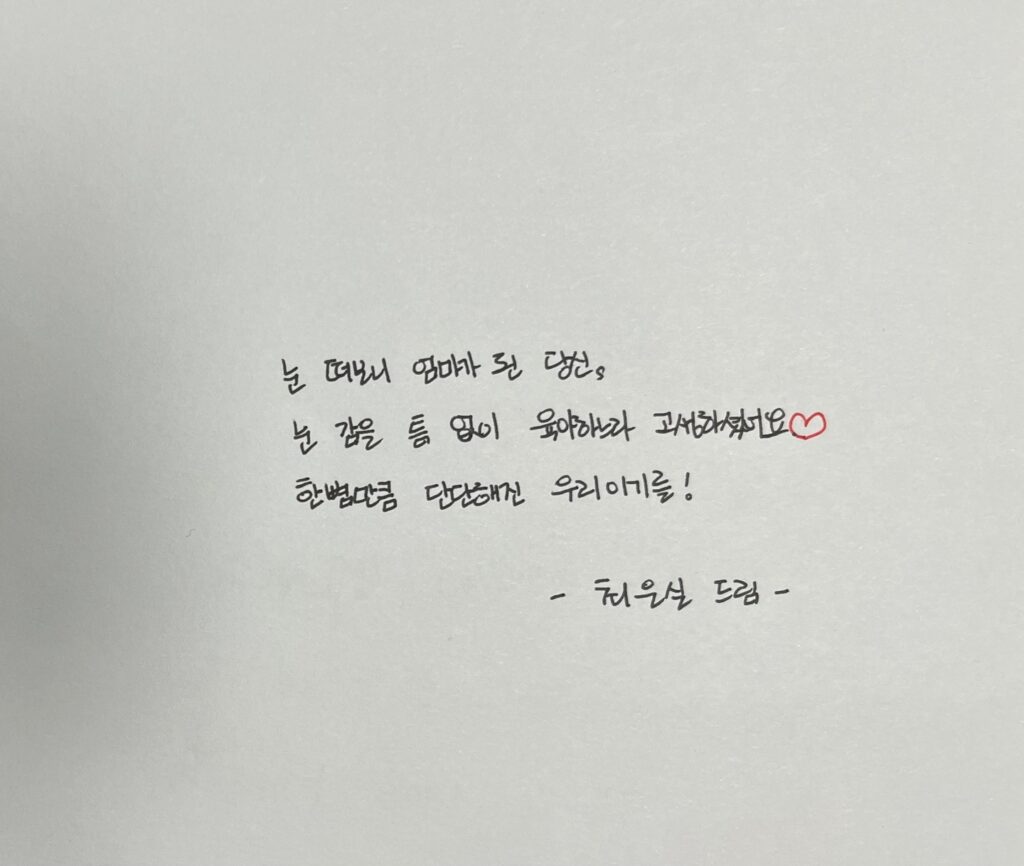 눈 떠보니 엄마가 된 당신.
눈 감을 틈 없이 육아하느라 고생하셨어요♡
한뼘만큼 단단해진 우리이기를!
- 최은실 드림 -